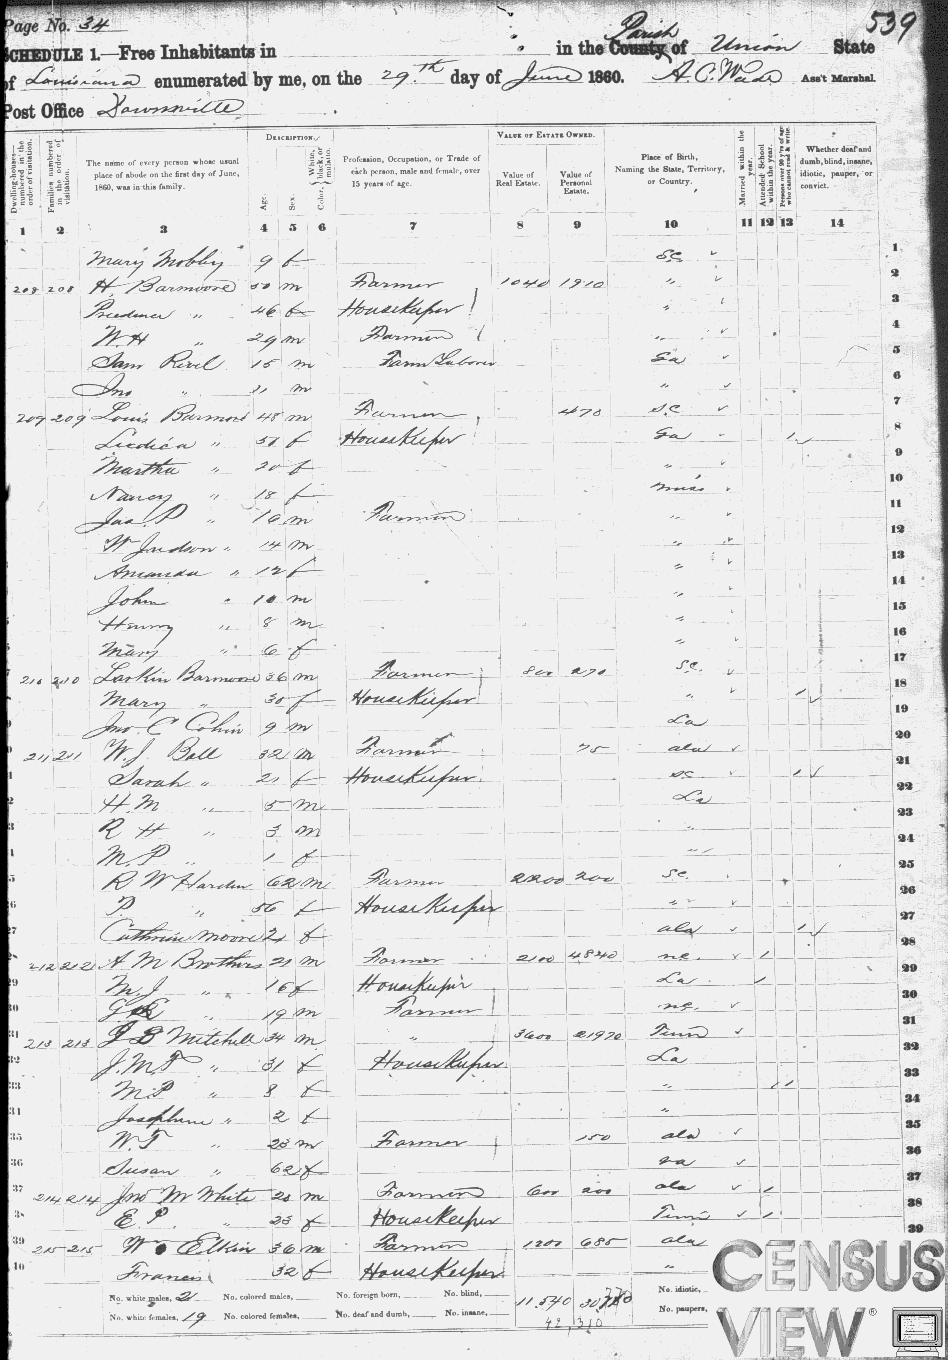 Page No. 34
539
SCHEDULE 1.—Free Inhabitants in in the County Parish of Union State
of Louisiana enumerated by me, on the 29th day of June 1860. A. C. Wade Ass't Marshal.
Post Office Downsville
Dwelling-houses—numbered in the order of visitation. Families numbered in the order of visitation. The name of every person whose usual place of abode on the first day of June, 1860, was in this family. DESCRIPTION. Age. Sex. Color, White, black, or mulatto. Profession, Occupation, or Trade of each person, male and female, over 15 years of age. VALUE OF ESTATE OWNED. Value of Real Estate. Value of Personal Estate. Place of Birth, Naming the State, Territory, or Country. Married within the year. Attended School within the year. Persons over 20 y'rs of age who cannot read & write. Whether deaf and dumb, blind, insane, idiotic, pauper, or convict.
1 2 3 4 5 6 7 8 9 10 11 12 13 14
Mary Mobbly 9 f SC 1
208 208 H Barmoore 50 m Farmer 1040 1910 " 2
" 46 f HouseKeeper " 3
W. H " 29 m Farmer " 4
Sam 15 m Farm Laborer Ga 5
Jno " 21 m " 6
209 209 Louis Barmore 48 m Farmer 470 S.C 7
" f HouseKeeper Ga 1 8
Martha " 20 f " 9
Nancy " 18 f Miss 10
Jas. P " 16 m Farmer " 11
W Judson " 14 m " 12
Amanda " 12 f " 13
John " 10 m " 14
Henry " 8 m " 15
Mary " 6 f " 16
210 210 Larkin Barmoore 36 m Farmer 800 270 SC. 17
Mary " 30 f HouseKeeper " 1 18
Jno. C 9 m La 19
211 211 W. J. Ball 32 m Farmer 75 ala 20
Sarah " 21 f HouseKeeper SC 1 21
H. M " 5 m La 22
R H " 3 m " 23
M. P " 1 f " 24
R W Hardin 62 m Farmer 2200 200 SC. 25
P. " 56 f HouseKeeper " 26
Cathrine Moore 21 f ala 1 27
212 212 A M Brothers 21 m Farmer 2100 4840 nc. 1 28
M. J " 16 f HouseKeeper La 1 29
" 19 m Farmer nc. 30
213 213 J B Mitchell 34 m " 3600 21970 Tenn 31
J. M. F " 31 f HouseKeeper La 32
M. P " 8 f " 1 33
Josephine " 2 f " 34
W. T " 23 m Farmer 150 ala 35
Susan " 62 f va 36
214 214 Jno M White 28 m Farmer 600 200 ala 1 37
E. P. " 23 f HouseKeeper Tenn 1 38
215 215 Wm Elkin 36 m Farmer 1200 685 ala 39
Frances 32 f HouseKeeper " 40
No. white males, 21 No. colored males, No. foreign born, No. blind, 11,540 No. idiotic,
No. white females, 19 No. colored females, No. deaf and dumb, No. insane, No. paupers,
42,310
CENSUS
VIEW®